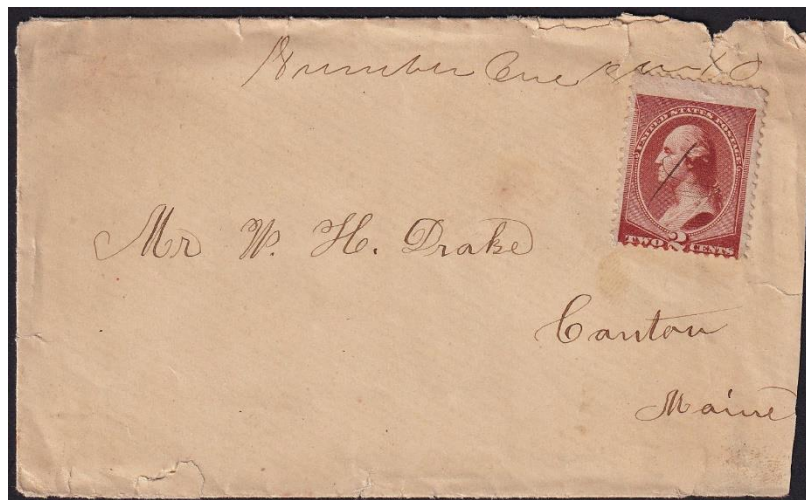 Number One
UNITED STATES POSTAGE
TWO 2 CENTS
Mr W. H. Drake
Canton
Maine